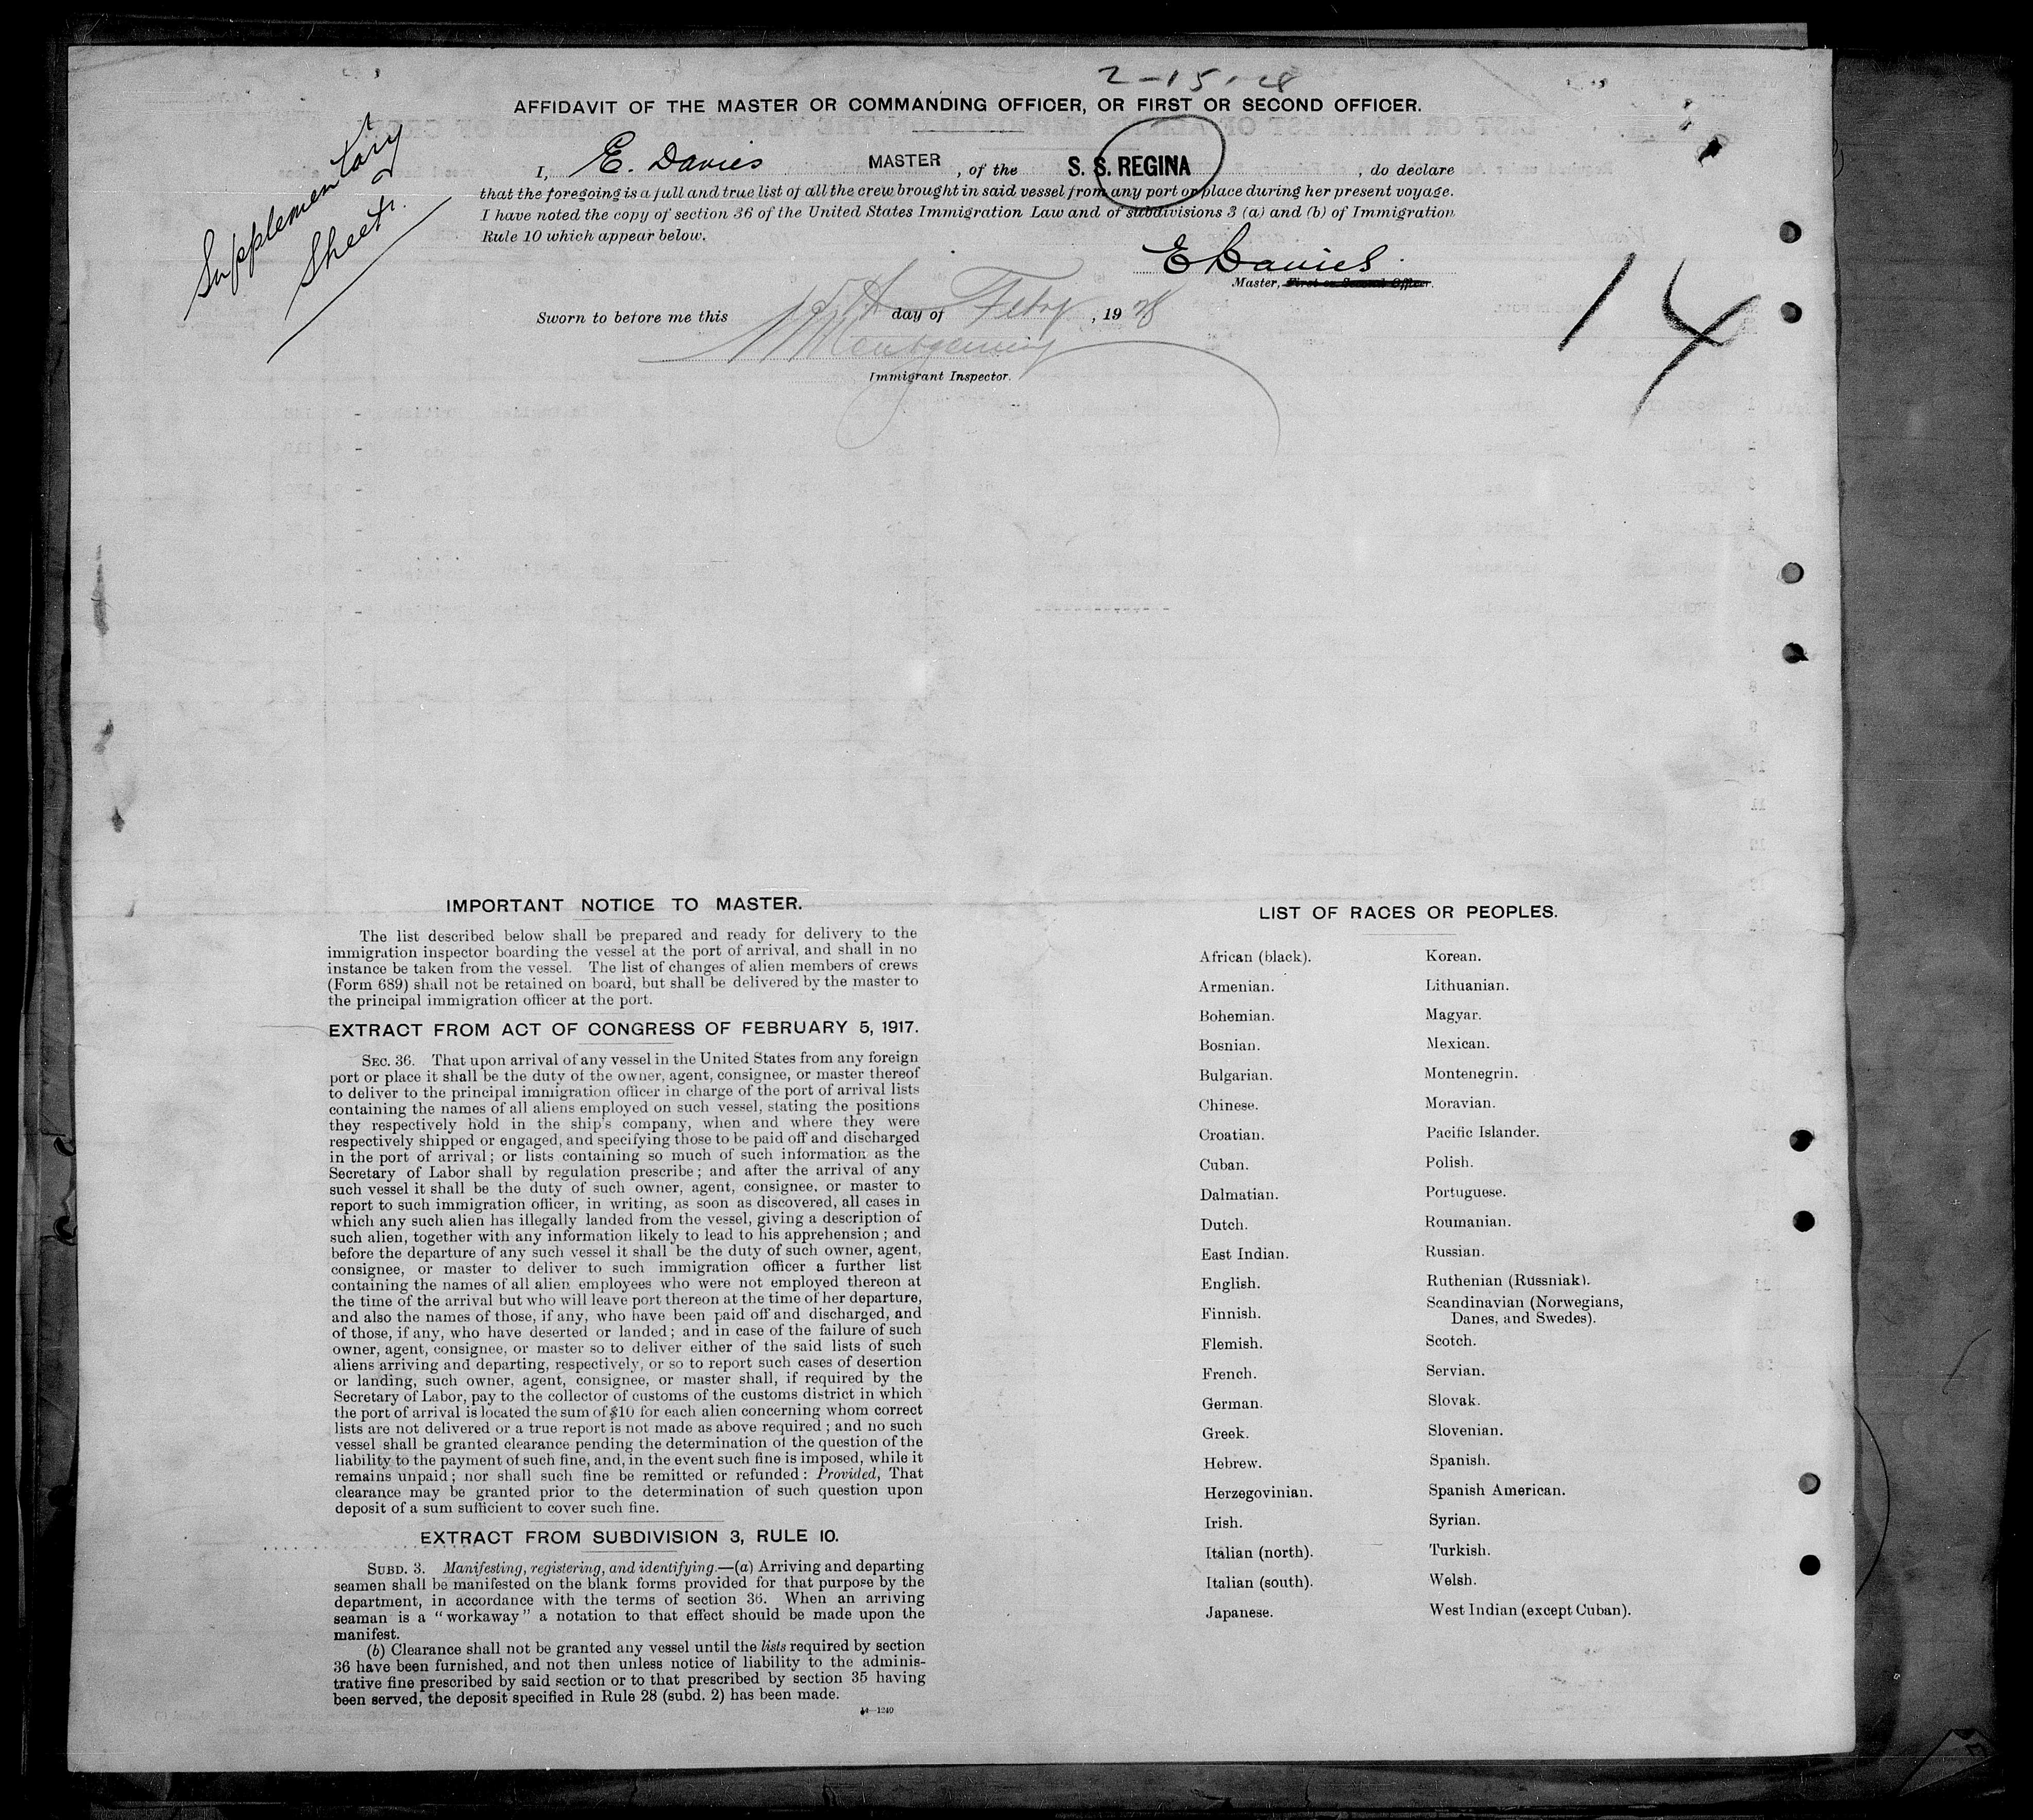 2-15-28
AFFIDAVIT OF THE MASTER OR COMMANDING OFFICER, OR FIRST OR SECOND OFFICER.
Supplementary
Sheet.
I, E. Davies MASTER, of the S. S. REGINA, do declare
that the foregoing is a full and true list of all the crew brought in said vessel from any port or place during her present voyage.
I have noted the copy of section 36 of the United States Immigration Law and of subdivisions 3 (a) and (b) of Immigration
Rule 10 which appear below.
E Davies
Master, First or Second Officer.
14
Sworn to before me this 15th day of Feby, 1928
Montgomery
Immigrant Inspector.
IMPORTANT NOTICE TO MASTER.
The list described below shall be prepared and ready for delivery to the
immigration inspector boarding the vessel at the port of arrival, and shall in no
instance be taken from the vessel. The list of changes of alien members of crews
(Form 689) shall not be retained on board, but shall be delivered by the master to
the principal immigration officer at the port.
EXTRACT FROM ACT OF CONGRESS OF FEBRUARY 5, 1917.
SEC. 36. That upon arrival of any vessel in the United States from any foreign
port or place it shall be the duty of the owner, agent, consignee, or master thereof
to deliver to the principal immigration officer in charge of the port of arrival lists
containing the names of all aliens employed on such vessel, stating the positions
they respectively hold in the ship's company, when and where they were
respectively shipped or engaged, and specifying those to be paid off and discharged
in the port of arrival; or lists containing so much of such information as the
Secretary of Labor shall by regulation prescribe; and after the arrival of any
such vessel it shall be the duty of such owner, agent, consignee, or master to
report to such immigration officer, in writing, as soon as discovered, all cases in
which any such alien has illegally landed from the vessel, giving a description of
such alien, together with any information likely to lead to his apprehension; and
before the departure of any such vessel it shall be the duty of such owner, agent,
consignee, or master to deliver to such immigration officer a further list
containing the names of all alien employees who were not employed thereon at
the time of the arrival but who will leave port thereon at the time of her departure,
and also the names of those, if any, who have been paid off and discharged, and
of those, if any, who have deserted or landed; and in case of the failure of such
owner, agent, consignee, or master so to deliver either of the said lists of such
aliens arriving and departing, respectively, or so to report such cases of desertion
or landing, such owner, agent, consignee, or master shall, if required by the
Secretary of Labor, pay to the collector of customs of the customs district in which
the port of arrival is located the sum of $10 for each alien concerning whom correct
lists are not delivered or a true report is not made as above required; and no such
vessel shall be granted clearance pending the determination of the question of the
liability to the payment of such fine, and, in the event such fine is imposed, while it
remains unpaid; nor shall such fine be remitted or refunded: Provided, That
clearance may be granted prior to the determination of such question upon
deposit of a sum sufficient to cover such fine.
EXTRACT FROM SUBDIVISION 3, RULE 10.
SUBD. 3. Manifesting, registering, and identifying.—(a) Arriving and departing
seamen shall be manifested on the blank forms provided for that purpose by the
department, in accordance with the terms of section 36. When an arriving
seaman is a "workaway" a notation to that effect should be made upon the
manifest.
(b) Clearance shall not be granted any vessel until the lists required by section
36 have been furnished, and not then unless notice of liability to the adminis-
trative fine prescribed by said section or to that prescribed by section 35 having
been served, the deposit specified in Rule 28 (subd. 2) has been made.
14—1240
LIST OF RACES OR PEOPLES.
African (black).
Armenian.
Bohemian.
Bosnian.
Bulgarian.
Chinese.
Croatian.
Cuban.
Dalmatian.
Dutch.
East Indian.
English.
Finnish.
Flemish.
French.
German.
Greek.
Hebrew.
Herzegovinian.
Irish.
Italian (north).
Italian (south).
Japanese.
Korean.
Lithuanian.
Magyar.
Mexican.
Montenegrin.
Moravian.
Pacific Islander.
Polish.
Portuguese.
Roumanian.
Russian.
Ruthenian (Russniak).
Scandinavian (Norwegians,
Danes, and Swedes).
Scotch.
Servian.
Slovak.
Slovenian.
Spanish.
Spanish American.
Syrian.
Turkish.
Welsh.
West Indian (except Cuban).